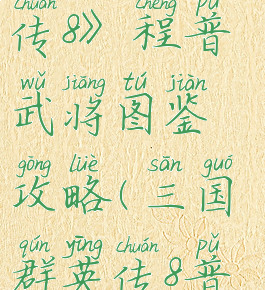 chuán chéng pǔ
传8》 程普
wǔ jiāng tú jiàn
武将图鉴
gōng lüè sān guó
攻略(三国
qún yīng chuán pǔ
群英传8普